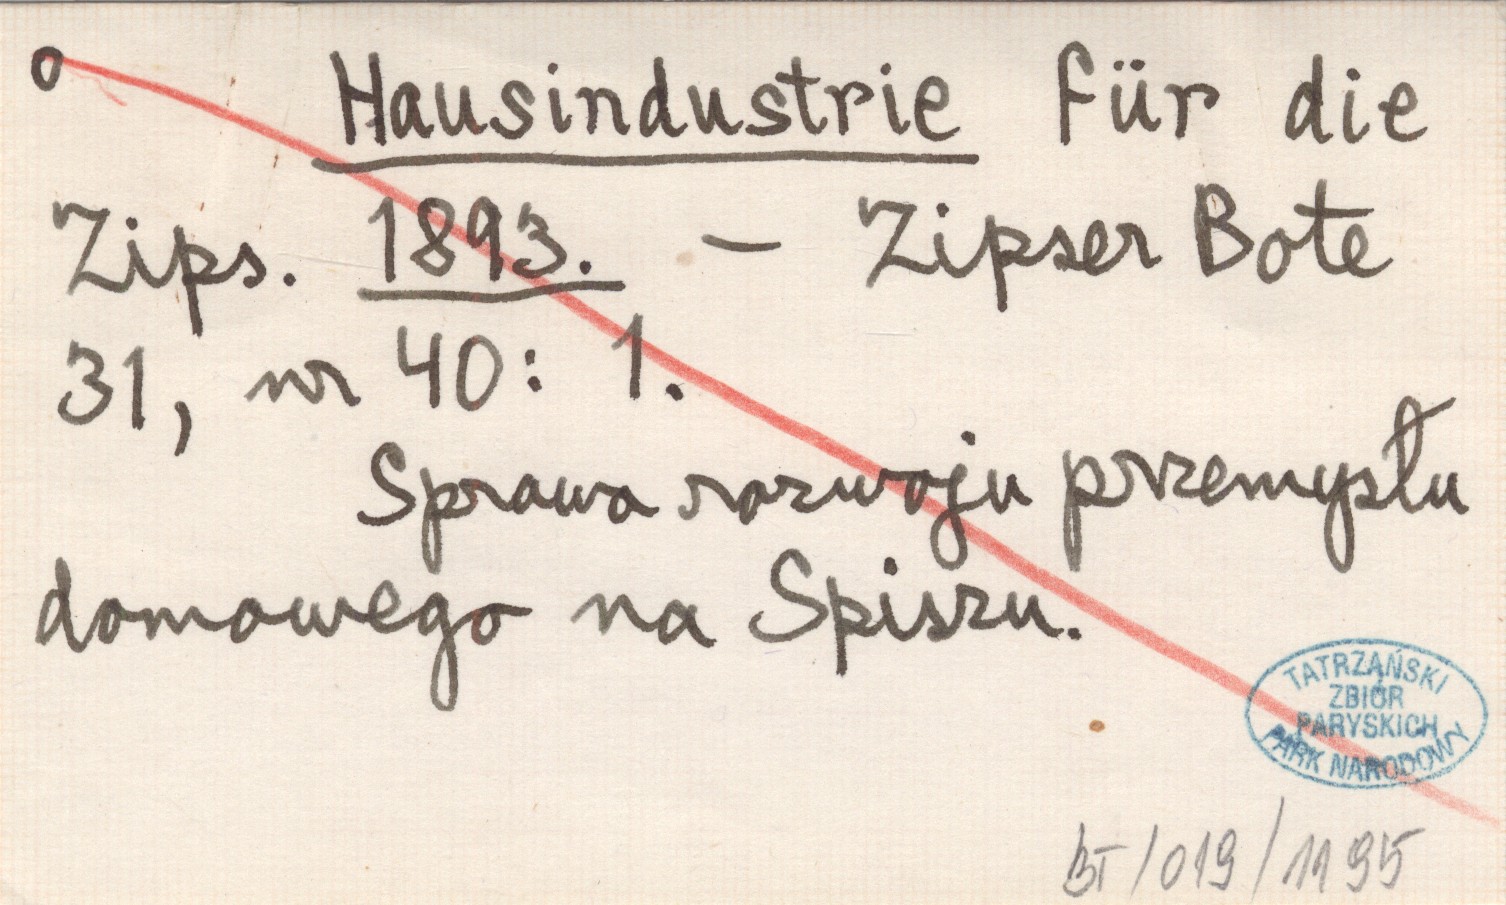 o Hausindustrie für die
Zips. 1893. – Zipser Bote
31, nr 40: 1.
Sprawa rozwoju przemysłu
domowego na Spiszu.
TATRZAŃSKI
ZBIÓR
PARYSKICH
PARK NARODOWY
BT/019/1195